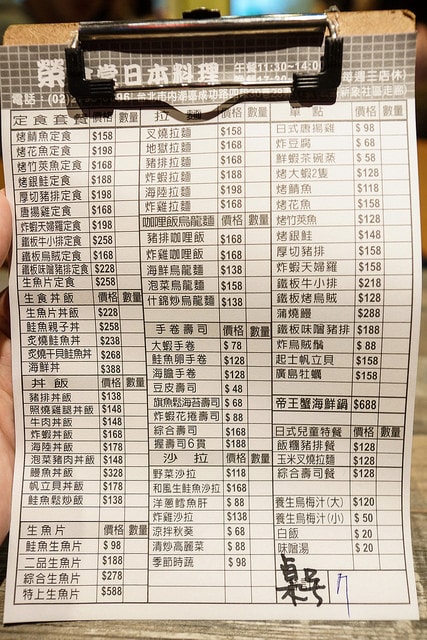 日本料理
每週三店休
定食套餐 價格 數量
烤鯖魚定食 $158
烤花魚定食 $198
烤竹莢魚定食 $168
烤銀鮭定食 $188
厚切豬排定食 $198
唐揚雞定食 $168
炸蝦天婦羅定食 $198
鐵板牛小排定食 $258
鐵板烏賊定食 $168
鐵板味噌豬排定食 $228
生魚片定食 $258
生食丼飯 價格 數量
生魚片丼飯 $228
鮭魚親子丼 $258
炙燒鮭魚丼 $238
炙燒干貝鮭魚丼 $268
海鮮丼 $388
丼飯 價格 數量
豬排丼飯 $138
照燒雞腿丼飯 $148
牛肉丼飯 $148
炸蝦丼飯 $168
海陸丼飯 $178
泡菜豬肉丼飯 $148
鰻魚丼飯 $328
帆立貝丼飯 $178
鮭魚鬆炒飯 $138
生魚片 價格 數量
鮭魚生魚片 $98
二品生魚片 $188
綜合生魚片 $278
特上生魚片 $588
拉麵 價格 數量
叉燒拉麵 $158
地獄拉麵 $168
豬排拉麵 $168
炸蝦拉麵 $188
海陸拉麵 $198
炸雞拉麵 $168
咖哩飯烏龍麵 價格 數量
豬排咖哩飯 $168
炸雞咖哩飯 $168
海鮮烏龍麵 $138
泡菜烏龍麵 $158
什錦炒烏龍麵 $138
手卷壽司 價格 數量
大蝦手卷 $78
鮭魚卵手卷 $128
海膽手卷 $128
豆皮壽司 $48
旗魚鬆海苔壽司 $68
炸蝦花捲壽司 $88
綜合壽司 $168
握壽司6貫 $188
沙拉 價格 數量
野菜沙拉 $118
和風生鮭魚沙拉 $168
洋蔥鱈魚肝 $88
炸雞沙拉 $138
涼拌秋葵 $68
清炒高麗菜 $88
季節時蔬 $98
單點 價格 數量
日式唐揚雞 $98
炸豆腐 $68
鮮蝦茶碗蒸 $58
烤大蝦2隻 $128
烤鯖魚 $118
烤花魚 $158
烤竹莢魚 $128
烤銀鮭 $148
厚切豬排 $158
炸蝦天婦羅 $158
鐵板牛小排 $218
鐵板烤烏賊 $128
蒲燒鰻 $288
鐵板味噌豬排 $188
炸烏賊鬚 $88
起士帆立貝 $158
廣島牡蠣 $158
帝王蟹海鮮鍋 $688
日式兒童特餐 價格 數量
飯糰豬排餐 $128
玉米叉燒拉麵 $128
綜合壽司餐 $128
養生烏梅汁(大) $120
養生烏梅汁(小) $50
白飯 $20
味噌湯 $20
桌号